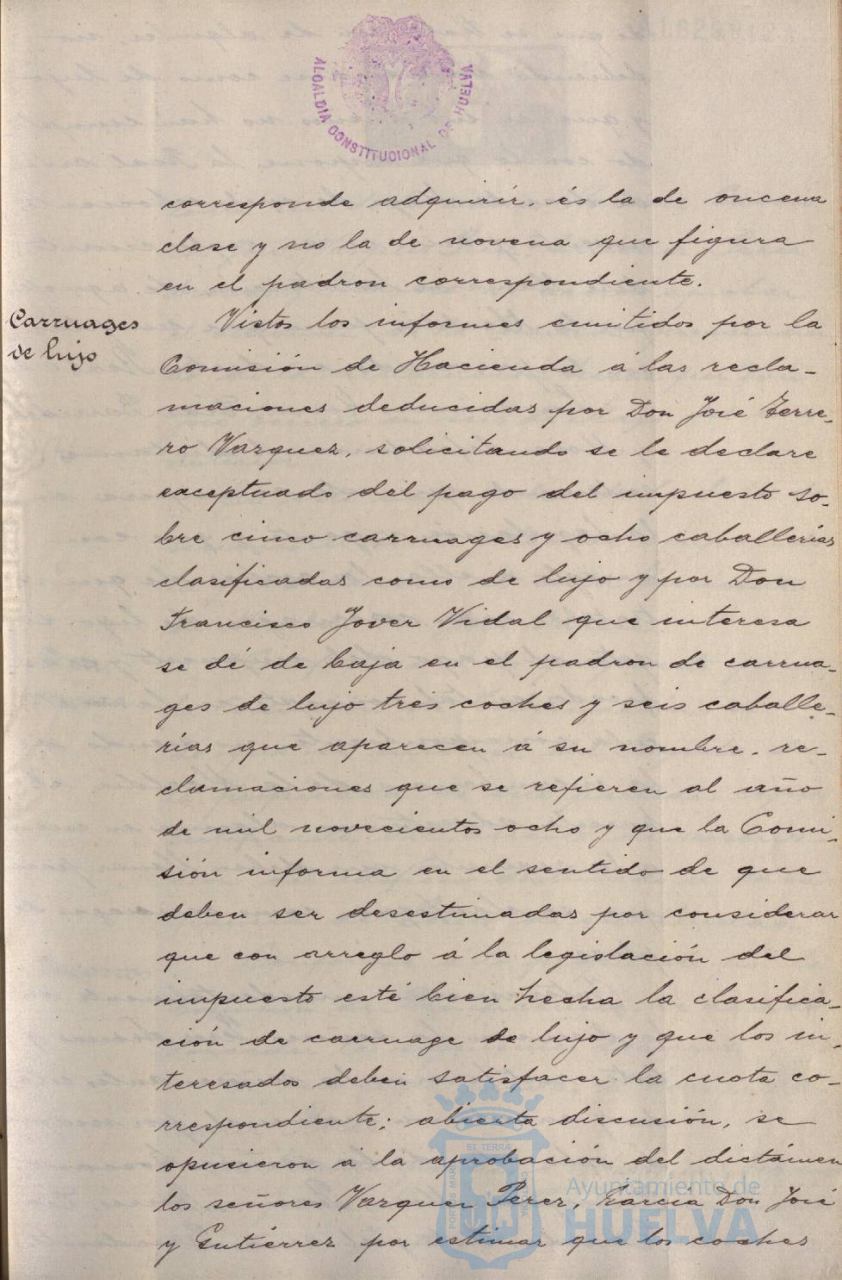 ALCALDIA CONSTITUCIONAL DE HUELVA
corresponde adquirir, és la de oncena
clase y no la de novena que figura
en el padron correspondiente.
Carruages
de lujo
Vistos los informes emitidos por la
Comisión de Hacienda á las recla-
maciones deducidas por Don José Ferre-
ro Vazquez, solicitando se le declare
exceptuado del pago del impuesto so-
bre cinco carruages y ocho caballerías
clasificadas como de lujo y por Don
Francisco Jover Vidal que interesa
se dé de baja en el padron de carrua-
ges de lujo tres coches y seis caballe-
rías que aparecen á su nombre, re-
clamaciones que se refieren al año
de mil novecientos ocho y que la Comi-
sión informa en el sentido de que
deben ser desestimadas por considerar
que con arreglo á la legislación del
impuesto esté bien hecha la clasifica-
ción de carruage de lujo y que los in-
teresados deben satisfacer la cuota co-
rrespondiente; abierta discusión, se
opusieron á la aprobación del dictámen
los señores Vazquez Perez, García Don José
y Gutiérrez por estimar que los coches
Ayuntamiento de
HUELVA